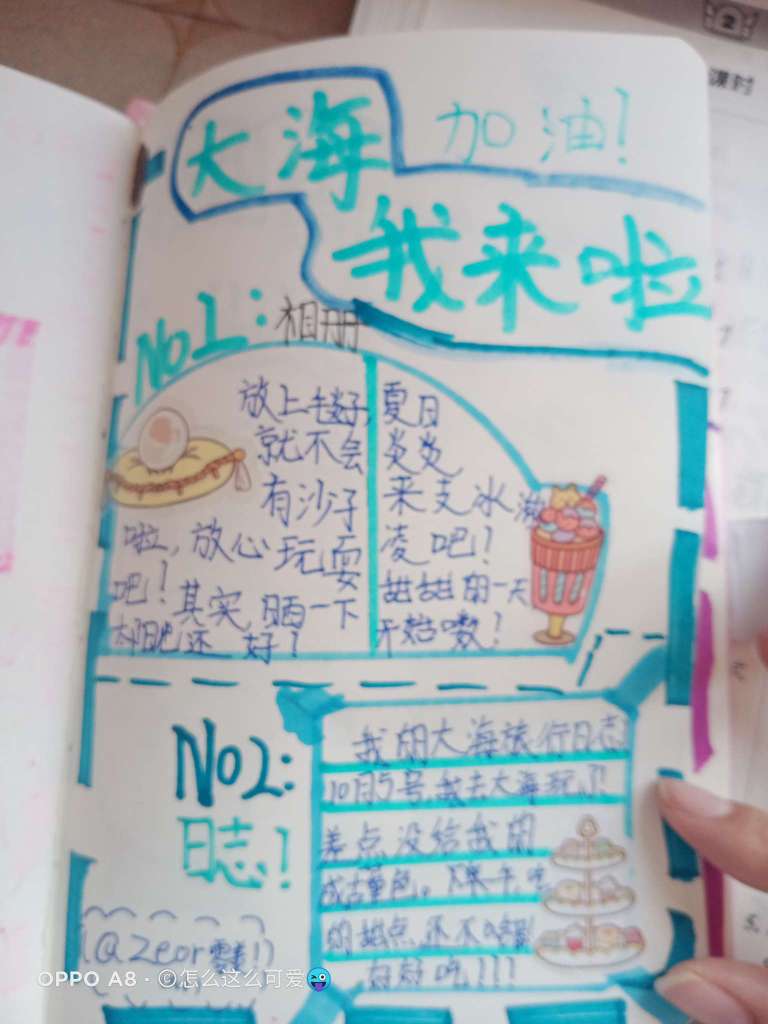 大海 加油！
我来啦
No1：相册
放上毯子，
就不会
有沙子
啦，放心玩耍
吧！其实，晒一下
太阳也还好！
夏日
炎炎
来支冰激
凌吧！
甜甜的一天
开始嗷！
No2：
日志！
我的大海旅行日志
10月5号，我去大海玩了！
差点没给我的
成古董色。下来午吃
的甜点还不错！
好好吃！！！
(@Zeor雫！)
OPPO A8 · ©怎么这么可爱😜
课时
2